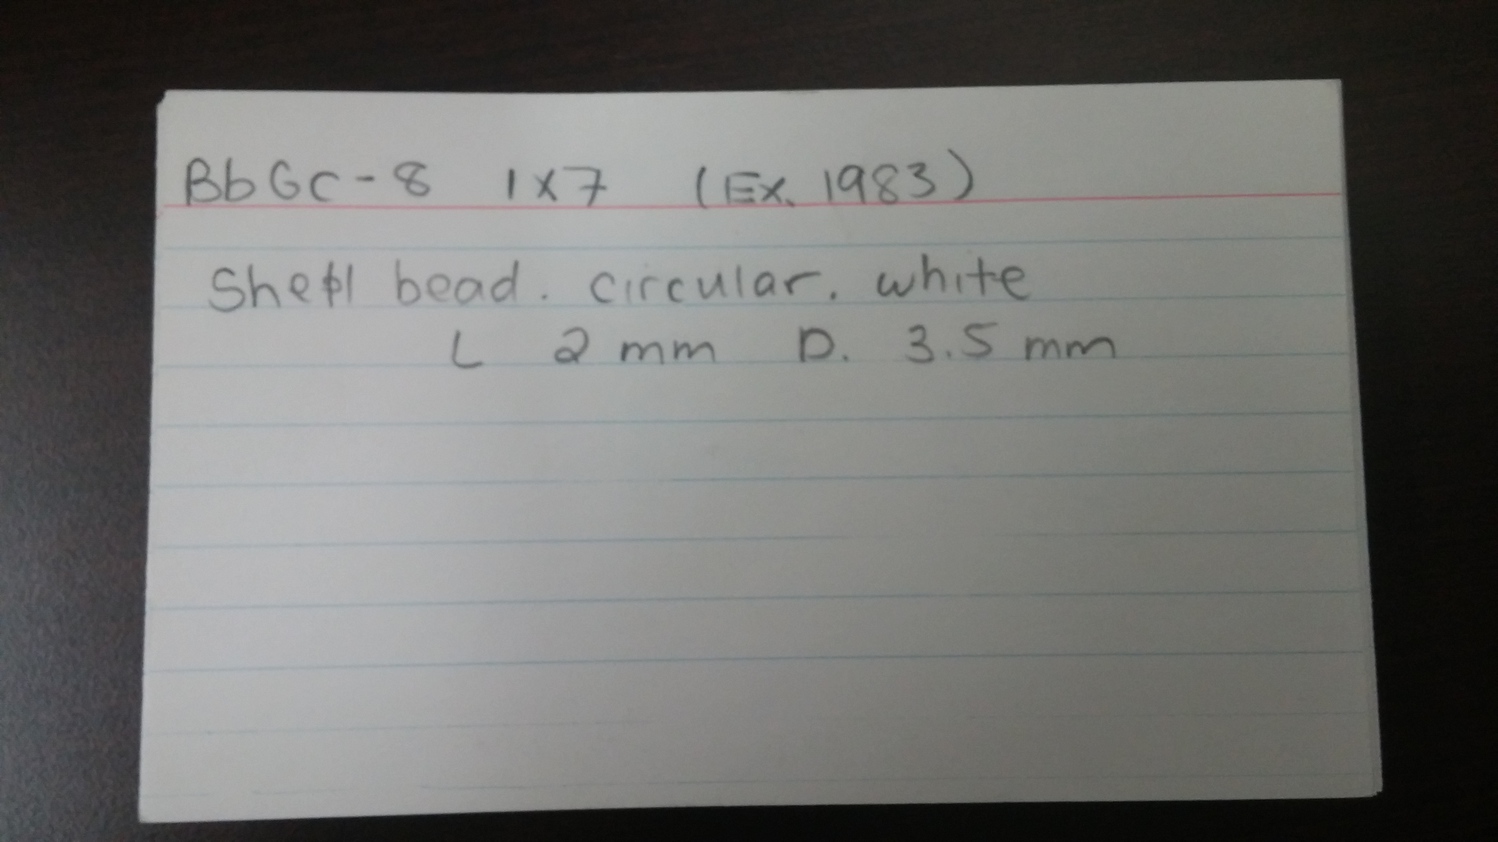 BbGc-8 1x7 (Ex. 1983)
Shell bead. circular. white
L 2mm D. 3.5mm